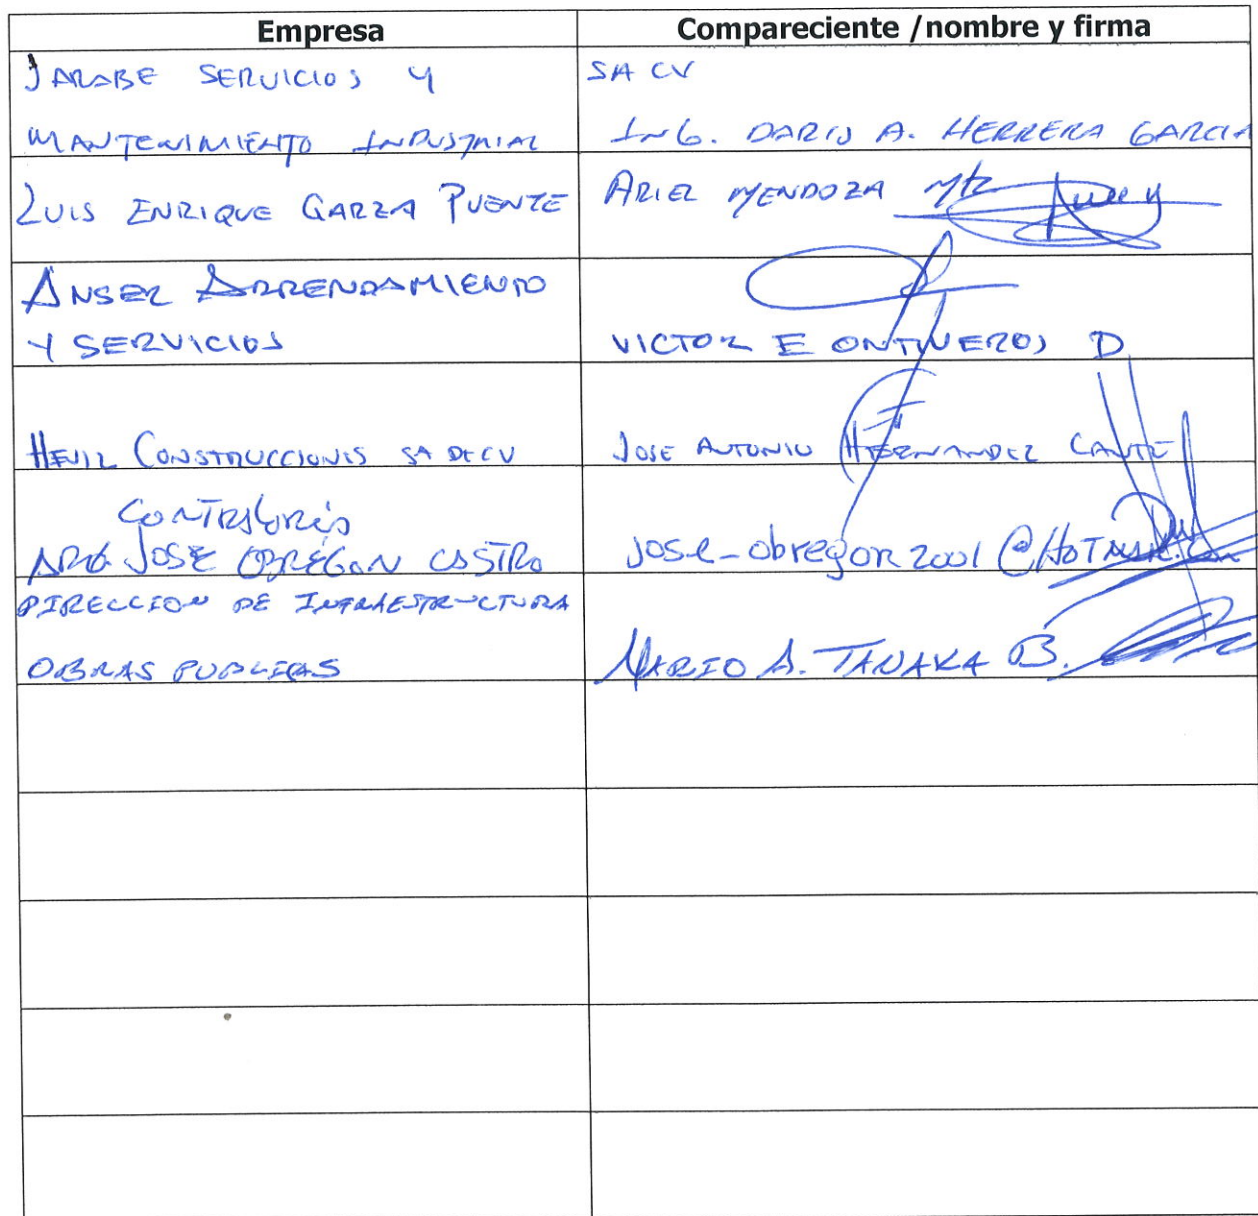 Empresa Compareciente / nombre y firma
JARABE SERVICIOS Y SA CV
MANTENIMIENTO INDUSTRIAL ING. DARIO A. HERRERA GARCIA
LUIS ENRIQUE GARZA PUENTE ARIEL MENDOZA MTZ
ANSER ARRENDAMIENTO
Y SERVICIOS VICTOR E ONTIVEROS D
HEVIL CONSTRUCCIONES SA DE CV JOSE ANTONIO HERNANDEZ
CONTRALORIA
ARQ JOSE OBREGON CASTRO jose-obregon2001@HOTMAIL.Com
DIRECCION DE INFRAESTRUCTURA
OBRAS PUBLICAS MARIO A. TANAKA B.